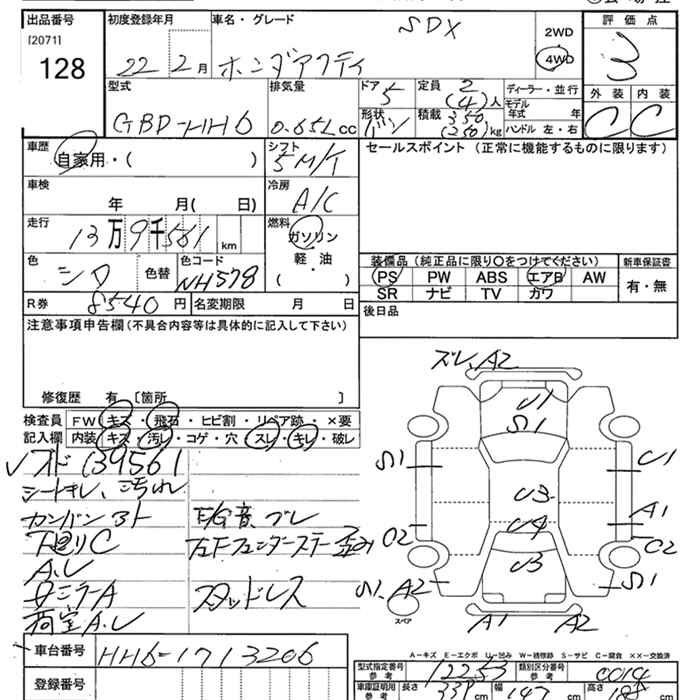 出品番号
[2071]
128
初度登録年月
22 2月
車名・グレード
ホンダアクティ SDX
2WD
4WD
評価点
3
型式
GBD-HH6
排気量
0.65L cc
ドア
5
形状
バン
定員
2
(4)人
積載 350
(250)kg
ディーラー・並行
モデル年式 年
ハンドル 左・右
外装 内装
C C
車歴
自家用・( )
シフト
5M/T
セールスポイント (正常に機能するものに限ります)
車検
年 月( 日)
冷房
A/C
走行
13万9千561km
燃料
ガソリン
軽・油
( ・ )
色
シロ
色替
色コード
NH578
R券 8540円
名変期限 月 日
装備品 (純正品に限り〇をつけてください)
PS PW ABS エアB AW
SR ナビ TV カワ
新車保証書
有・無
後日品
注意事項申告欄 (不具合内容等は具体的に記入して下さい)
修復歴 有 [箇所 ]
検査員
記入欄
FW キズ・飛石・ヒビ割・リペア跡・×要
内装 キズ・汚レ・コゲ・穴・スレ・キレ・破レ
139561
シートキレ、汚れ
カンバンアト
下廻りC
E/G音、ブレ
左Fフェンダーステー歪み
A、U
ミラーA
スタッドレス
荷室A、U
ズレ、A2
U1
S1
S1
U1
U3
A1
U4
C2
C2
U3
S1、A2
S1
スペア
A1 A2
車台番号
HH6-1713206
登録番号
A-キズ E-エクボ U-凹み W-補修跡 S-サビ C-腐食 ××-交換済
型式指定番号
参考
12253
類別区分番号
参考
0014
車庫証明用
参考
長さ 339cm
幅 147cm
高さ cm